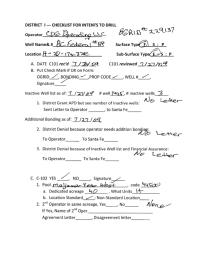 DISTRICT I — CHECKLIST FOR INTENTS TO DRILL
Operator CDG Operating LLC OGRID # 229137
Well Name& # BC Federal # 59 Surface Type F S P
Location Sub-Surface Type F S P
A. DATE C101 rec'd 7/28/09 C101 reviewed 7/27/09
B. Put Check Mark if OK on Form:
OGRID ✓, BONDING ✓, PROP CODE ✓, WELL # ✓,
Signature ✓
Inactive Well list as of: 7/27/09 # well # Inactive wells 3
1. District Grant APD but see number of inactive wells: No Letter
Sent Letter to Operator to Santa Fe
Additional Bonding as of: 7/27/09
2. District Denial because operator needs addition bonding: No Letter
To Operator To Santa Fe
3. District Denial because of Inactive Well list and Financial Assurance: No Letter
To Operator To Santa Fe
C. C-102 YES ✓ NO Signature ✓
1. Pool Maljamar Yeso West code 44500
a. Dedicated acreage 40 What Units
b. Location Standard ✓ Non-Standard Location
2. 2nd Operator in same acreage, Yes No ✓
If Yes, Name of 2nd Oper
Agreement Letter Disagreement letter